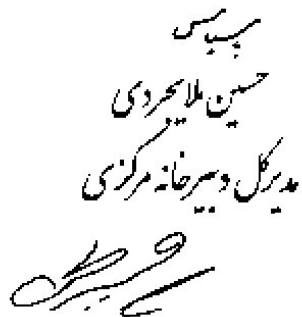 سپاس
حسین ملایجردی
مدیرکل دبیرخانه مرکزی